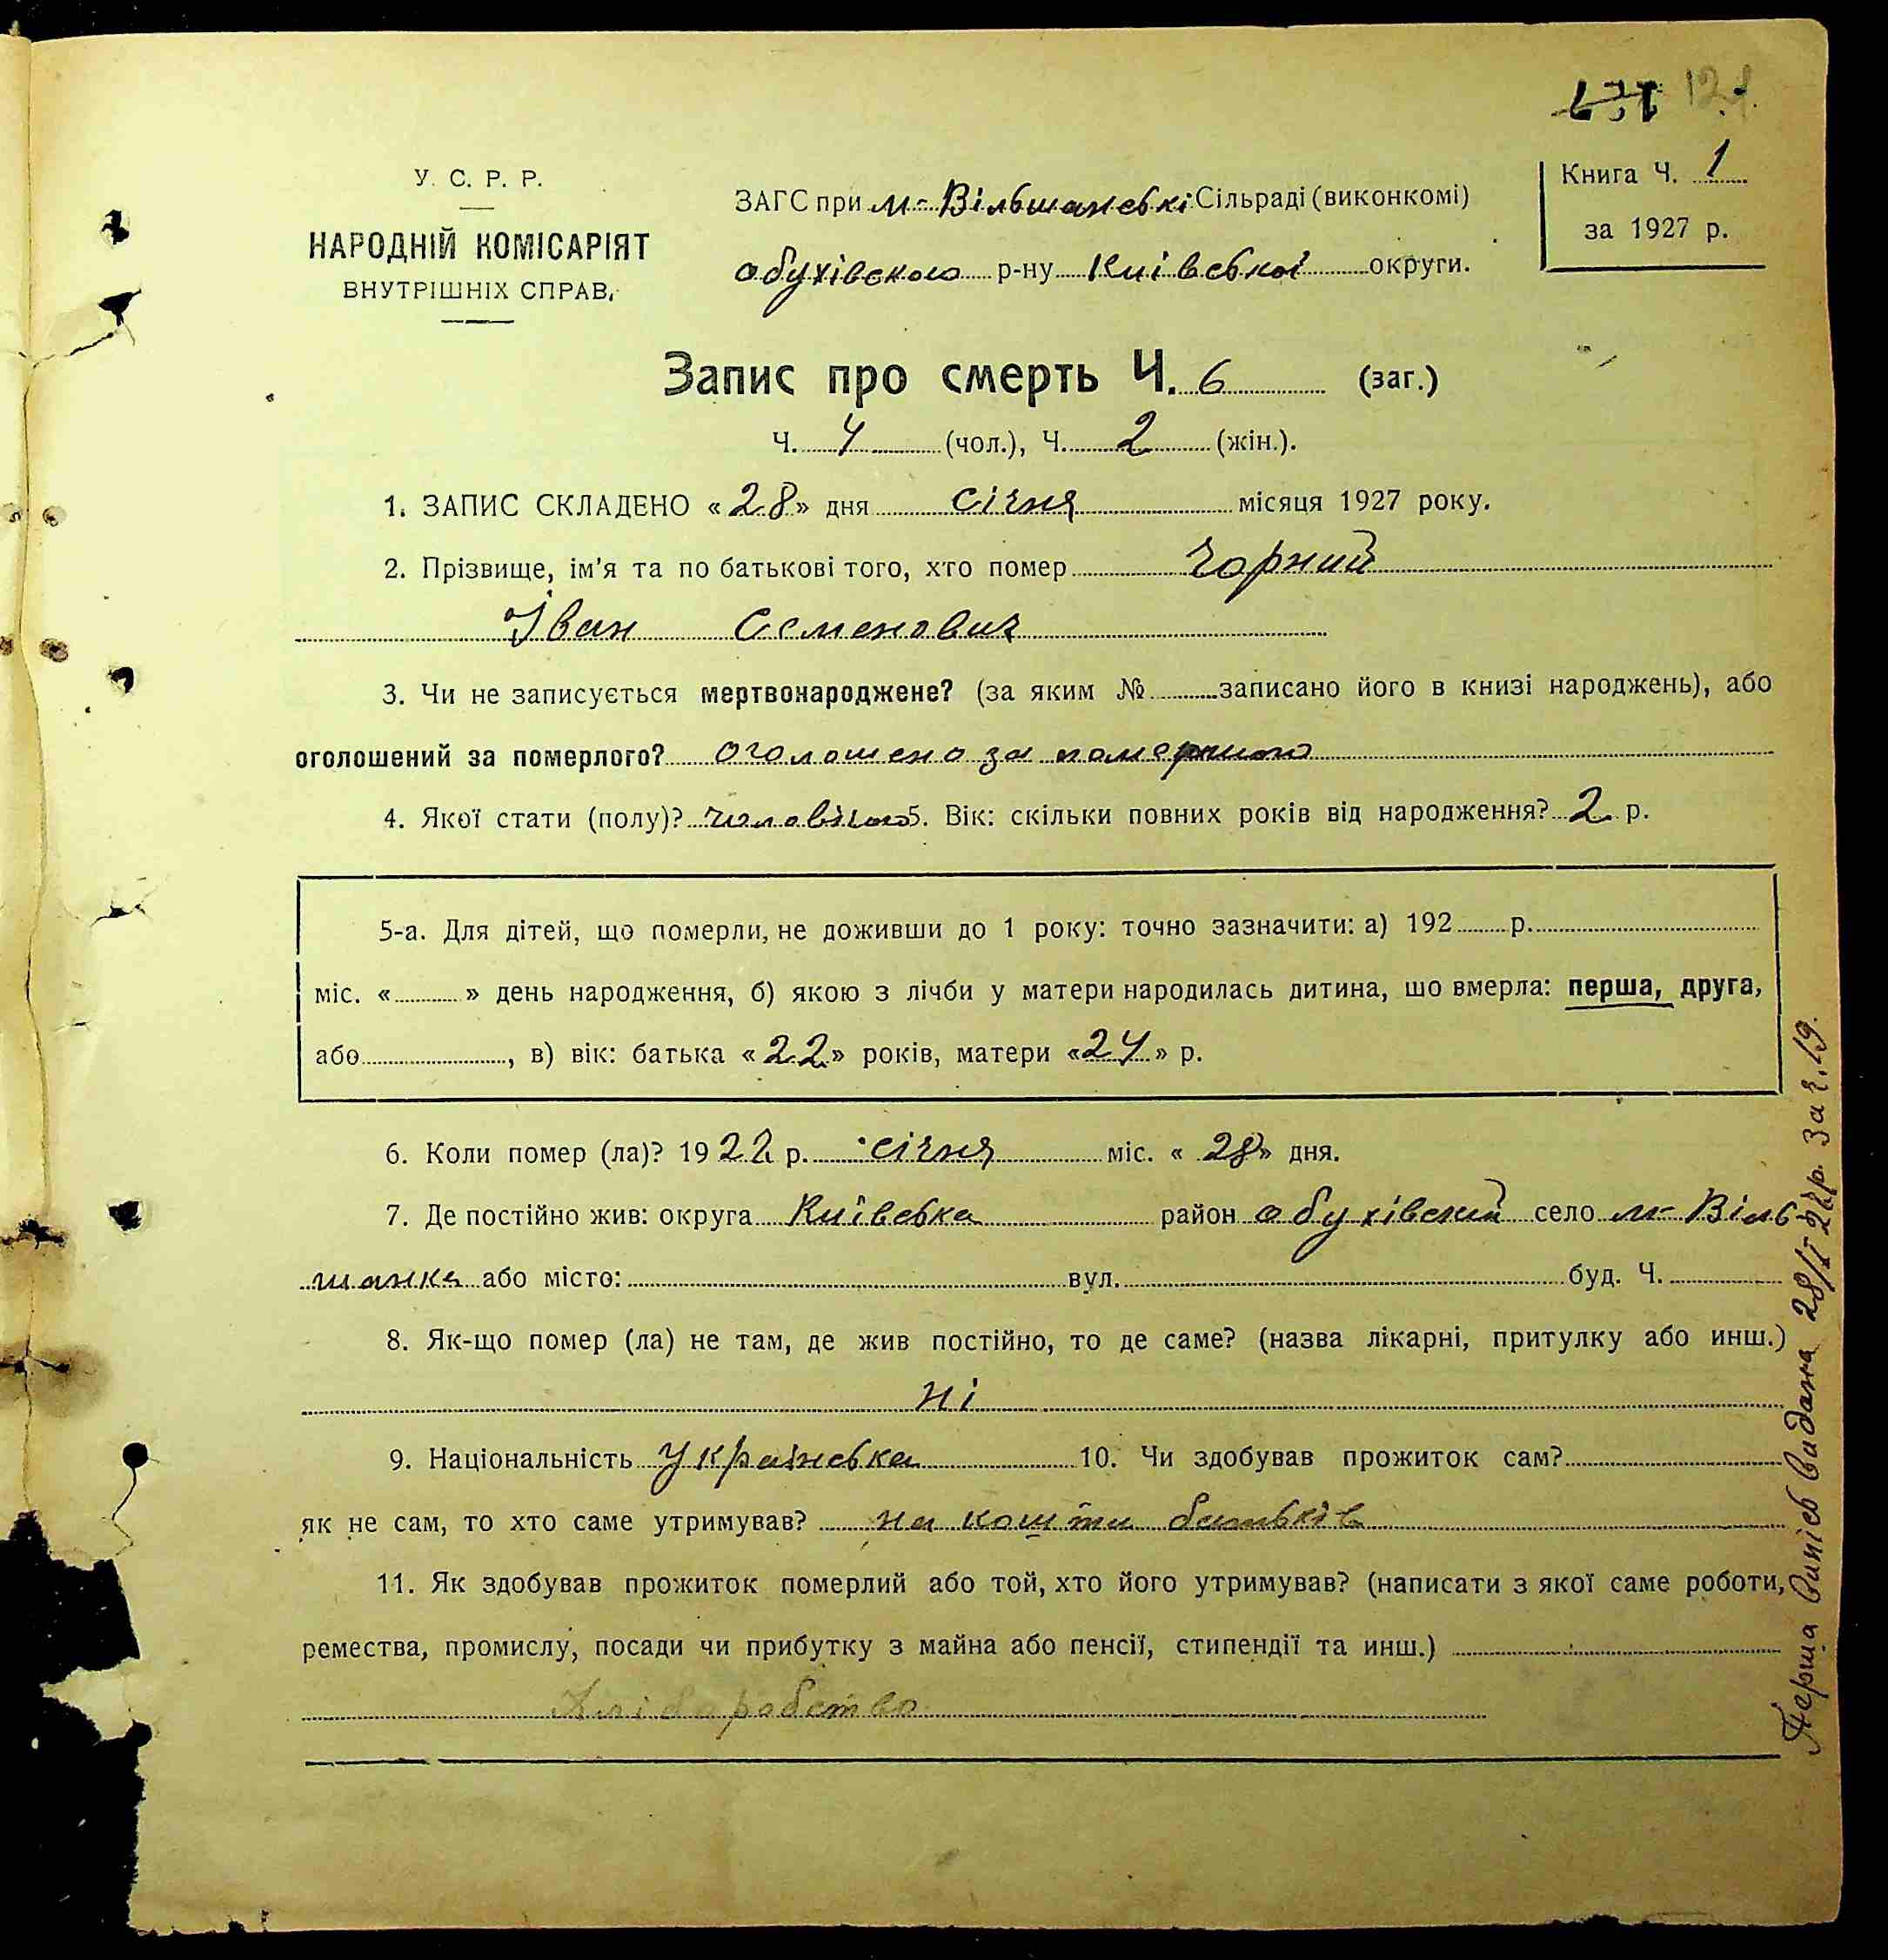 121
У. С. Р. Р.
НАРОДНІЙ КОМІСАРІЯТ
ВНУТРІШНІХ СПРАВ.
ЗАГС при м. Вільшанські Сільраді (виконкомі)
Обухівского р-ну Київської округи.
Книга Ч. 1
за 1927 р.
Запис про смерть Ч. 6 (заг.)
Ч. 4 (чол.), Ч. 2 (жін.).
1. ЗАПИС СКЛАДЕНО «28» дня січня місяця 1927 року.
2. Прізвище, ім'я та по батькові того, хто помер Чорний
Іван Семенович
3. Чи не записується мертвонароджене? (за яким № записано його в книзі народжень), або
оголошений за померлого? оголошено за
4. Якої стати (полу)? 5. Вік: скільки повних років від народження? 2 р.
5-а. Для дітей, що померли, не доживши до 1 року: точно зазначити: а) 192 р.
міс. « » день народження, б) якою з лічби у матери народилась дитина, що вмерла: перша, друга,
або , в) вік: батька «22» років, матери «24» р.
6. Коли помер (ла)? 1922 р. січня міс. «28» дня.
7. Де постійно жив: округа Київська район Обухівский село м- Віль-
шанка або місто: вул. буд. Ч.
8. Як-що помер (ла) не там, де жив постійно, то де саме? (назва лікарні, притулку або инш.)
ні
9. Національність Українська 10. Чи здобував прожиток сам?
як не сам, то хто саме утримував? на кошти батьків
11. Як здобував прожиток померлий або той, хто його утримував? (написати з якої саме роботи,
ремества, промислу, посади чи прибутку з майна або пенсії, стипендії та инш.)
Хліборобство
Перша випісь видана 28/I 27р. за ч. 19.